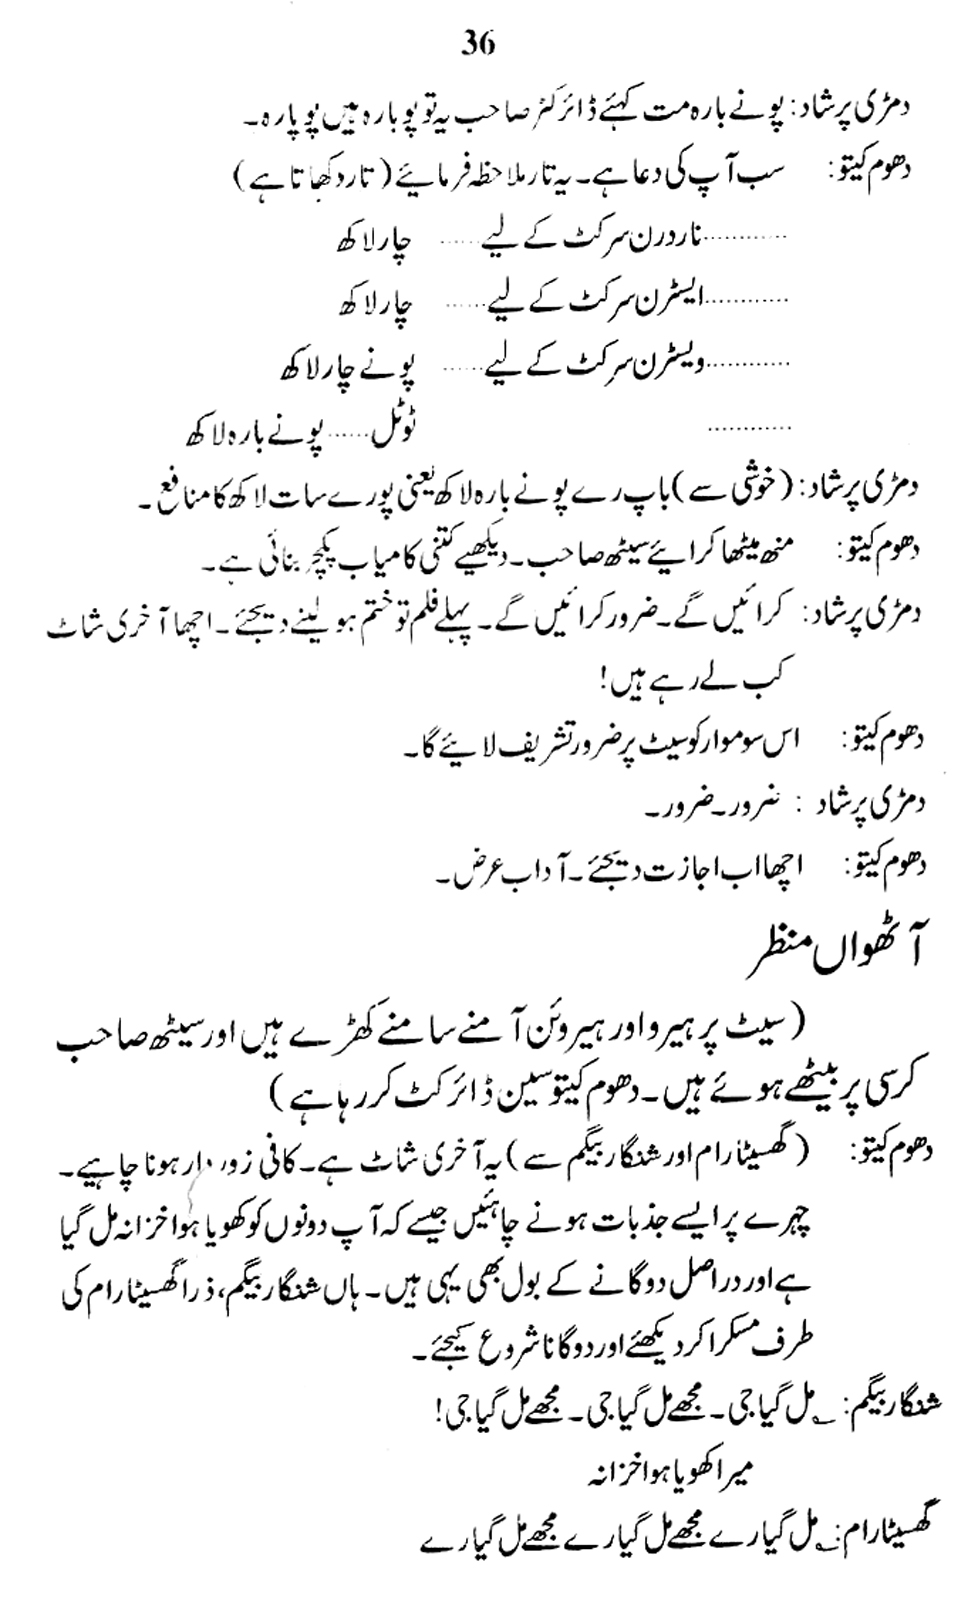 36
دمڑی پرشاد: پونے بارہ مت کہئے ڈائرکٹر صاحب یہ تو پوبارہ ہیں پوبارہ۔
دھوم کیتو: سب آپ کی دعا ہے۔ یہ تار ملاحظہ فرمائیے (تار دکھاتا ہے)
............ناردرن سرکٹ کے لیے ...... چار لاکھ
............ایسٹرن سرکٹ کے لیے ...... چار لاکھ
............ویسٹرن سرکٹ کے لیے ...... پونے چار لاکھ
............ ٹوٹل ...... پونے بارہ لاکھ
دمڑی پرشاد: (خوشی سے) باپ رے پونے بارہ لاکھ یعنی پورے سات لاکھ کا منافع۔
دھوم کیتو: منھ میٹھا کرائیے سیٹھ صاحب۔ دیکھیے کتنی کامیاب پکچر بنائی ہے۔
دمڑی پرشاد: کرائیں گے۔ ضرور کرائیں گے۔ پہلے فلم تو ختم ہو لینے دیجئے۔ اچھا آخری شاٹ
کب لے رہے ہیں!
دھوم کیتو: اس سوموار کو سیٹ پر ضرور تشریف لائیے گا۔
دمڑی پرشاد : ضرور۔ ضرور۔
دھوم کیتو: اچھا اب اجازت دیجئے۔ آداب عرض۔
آٹھواں منظر
(سیٹ پر ہیرو اور ہیروئن آمنے سامنے کھڑے ہیں اور سیٹھ صاحب
کرسی پر بیٹھے ہوئے ہیں۔ دھوم کیتو سین ڈائرکٹ کر رہا ہے)
دھوم کیتو: (گھسیٹا رام اور شنگار بیگم سے) یہ آخری شاٹ ہے۔ کافی زوردار ہونا چاہیے۔
چہرے پر ایسے جذبات ہونے چاہئیں جیسے کہ آپ دونوں کو کھویا ہوا خزانہ مل گیا
ہے اور دراصل دوگانے کے بول بھی یہی ہیں۔ ہاں شنگار بیگم، ذرا گھسیٹا رام کی
طرف مسکرا کر دیکھئے اور دوگانا شروع کیجئے۔
شنگار بیگم: ؎ مل گیا جی۔ مجھے مل گیا جی۔ مجھے مل گیا جی!
میرا کھویا ہوا خزانہ
گھسیٹا رام: ؎ مل گیا رے مجھے مل گیا رے مجھے مل گیا رے